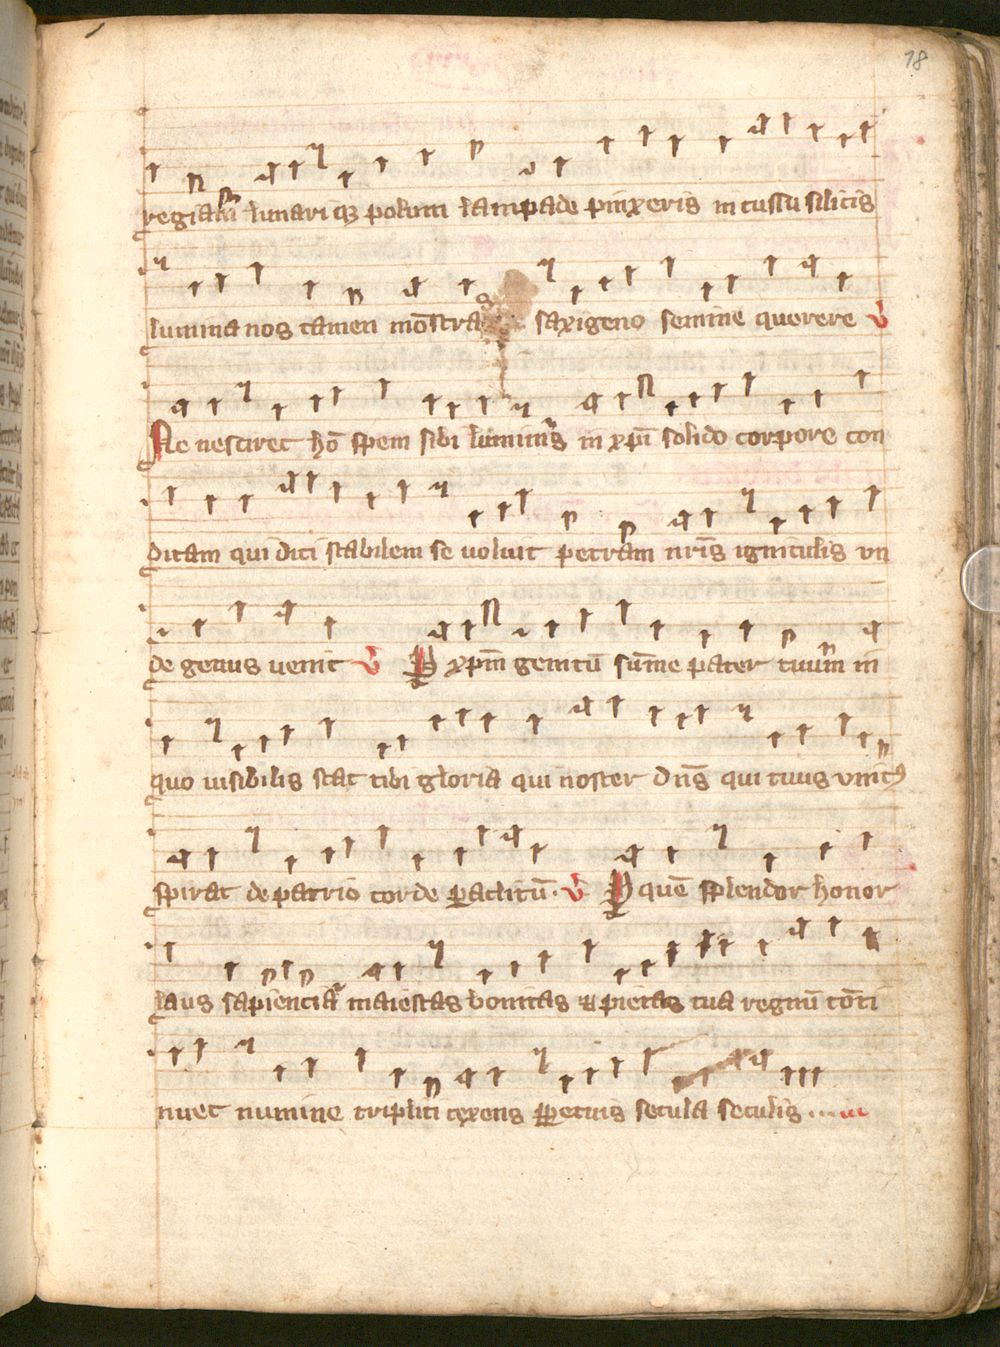 18
regiam lunariqꝫ polum lampade pinxeris incussu silicis
lumina nos tamen mōstras saxigeno semine querere v̄
Ne nesciret hō spem sibi luminis in xp̄m solido corpore con
ditam qui dici stabilem se uoluit petram nr̄is igniculis vn
de genus uenit v̄ P xpm̄ genitū sūme pater tuum in
quo uisibilis stat tibi gloria qui noster dn̄s qui tuus vnicꝰ
spirat de patrio corde ꝑaclitū. v̄ P quē splendor honor
laus sapiencia maiestas bonitas ⁊ pietas tua regnū cōti
nuet numine triplici texens ꝑpetuis secula seculis